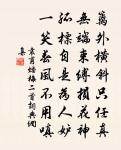 籬外橫斜只任真
無端束縛損花神
孤標自是為人妒
一笑春風不用嗔
袁甫蟠梅二首詞典網
集